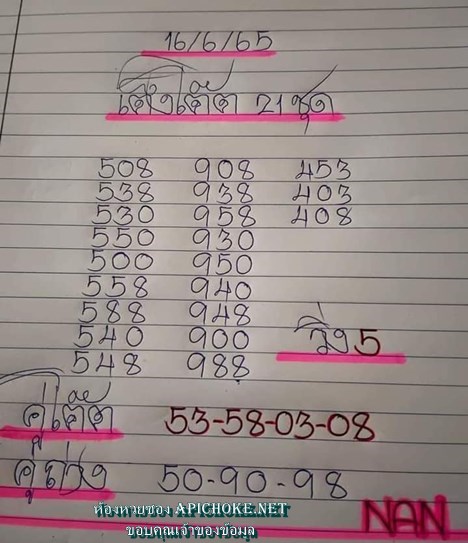 16/6/65
เต็งโต๊ด 21 ชุด
508 908 453
538 938 403
530 958 408
550 930
500 950
558 940
588 948
540 900 วิ่ง 5
548 988
คู่โต๊ด 53-58-03-08
คู่ช่วง 50-90-98
NAN
ห้องหวยซอง APICHOKE.NET
ขอบคุณเจ้าของข้อมูล